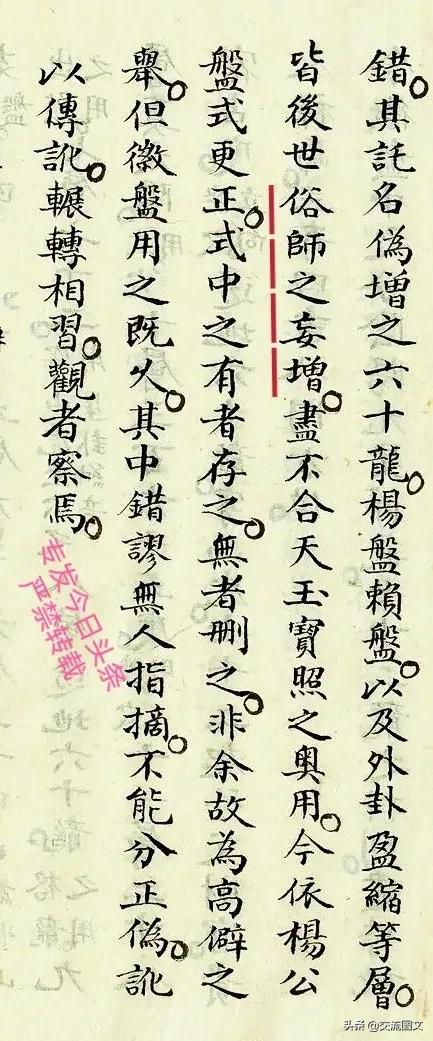 錯。其託名偽增之六十龍。楊盤賴盤。以及外卦盈縮等層。
皆後世俗師之妄增。盡不合天玉寶照之奧用。今依楊公
盤式更正。式中之有者存之。無者刪之。非余故為高僻之
舉。但徽盤用之既久。其中錯謬無人指摘。不能分正偽。訛
以傳訛。輾轉相習。觀者察焉。
专发今日头条
严禁转载
头条 @交流图文